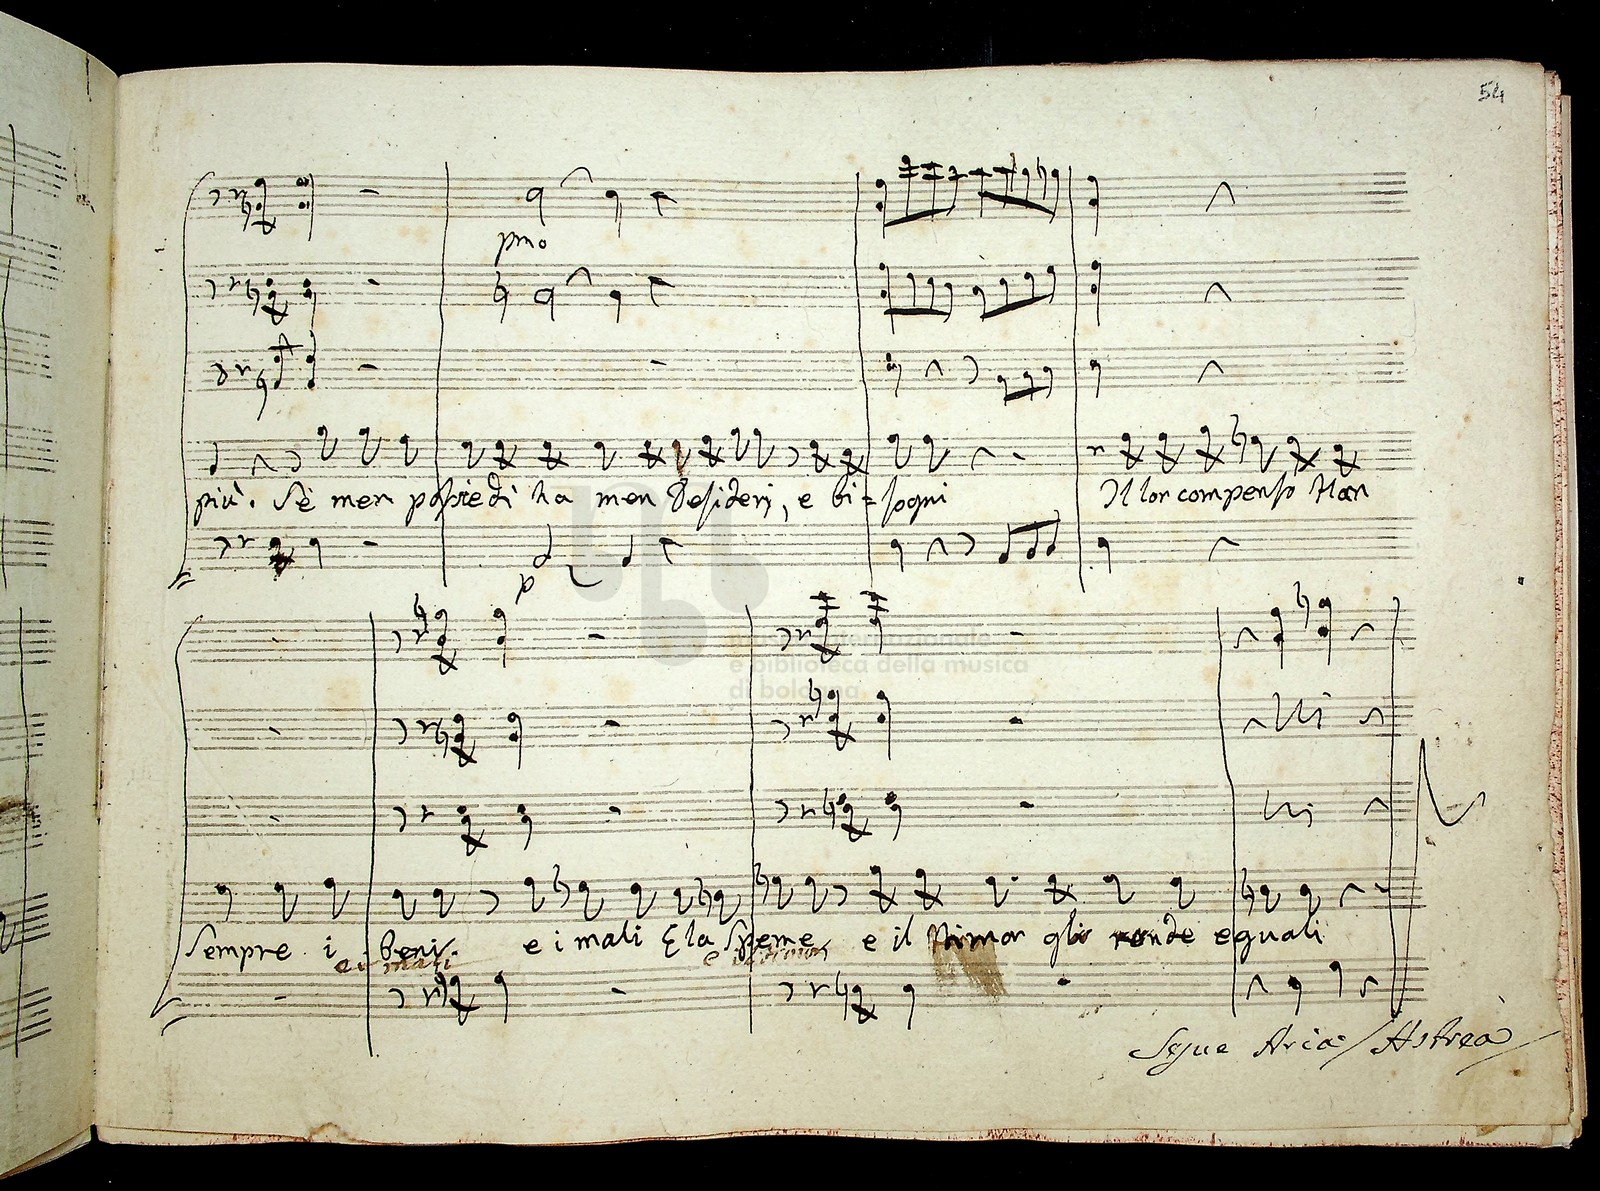 54
pmo
più. Se men possiedi ha men desiderj, e bi=sogni Il lor compenso Han
p
museo internazionale
e biblioteca della musica
di bologna
sempre i beni e i mali E la speme e il timor gli rende eguali
e i mali e il timor
Segue Aria / Astrea